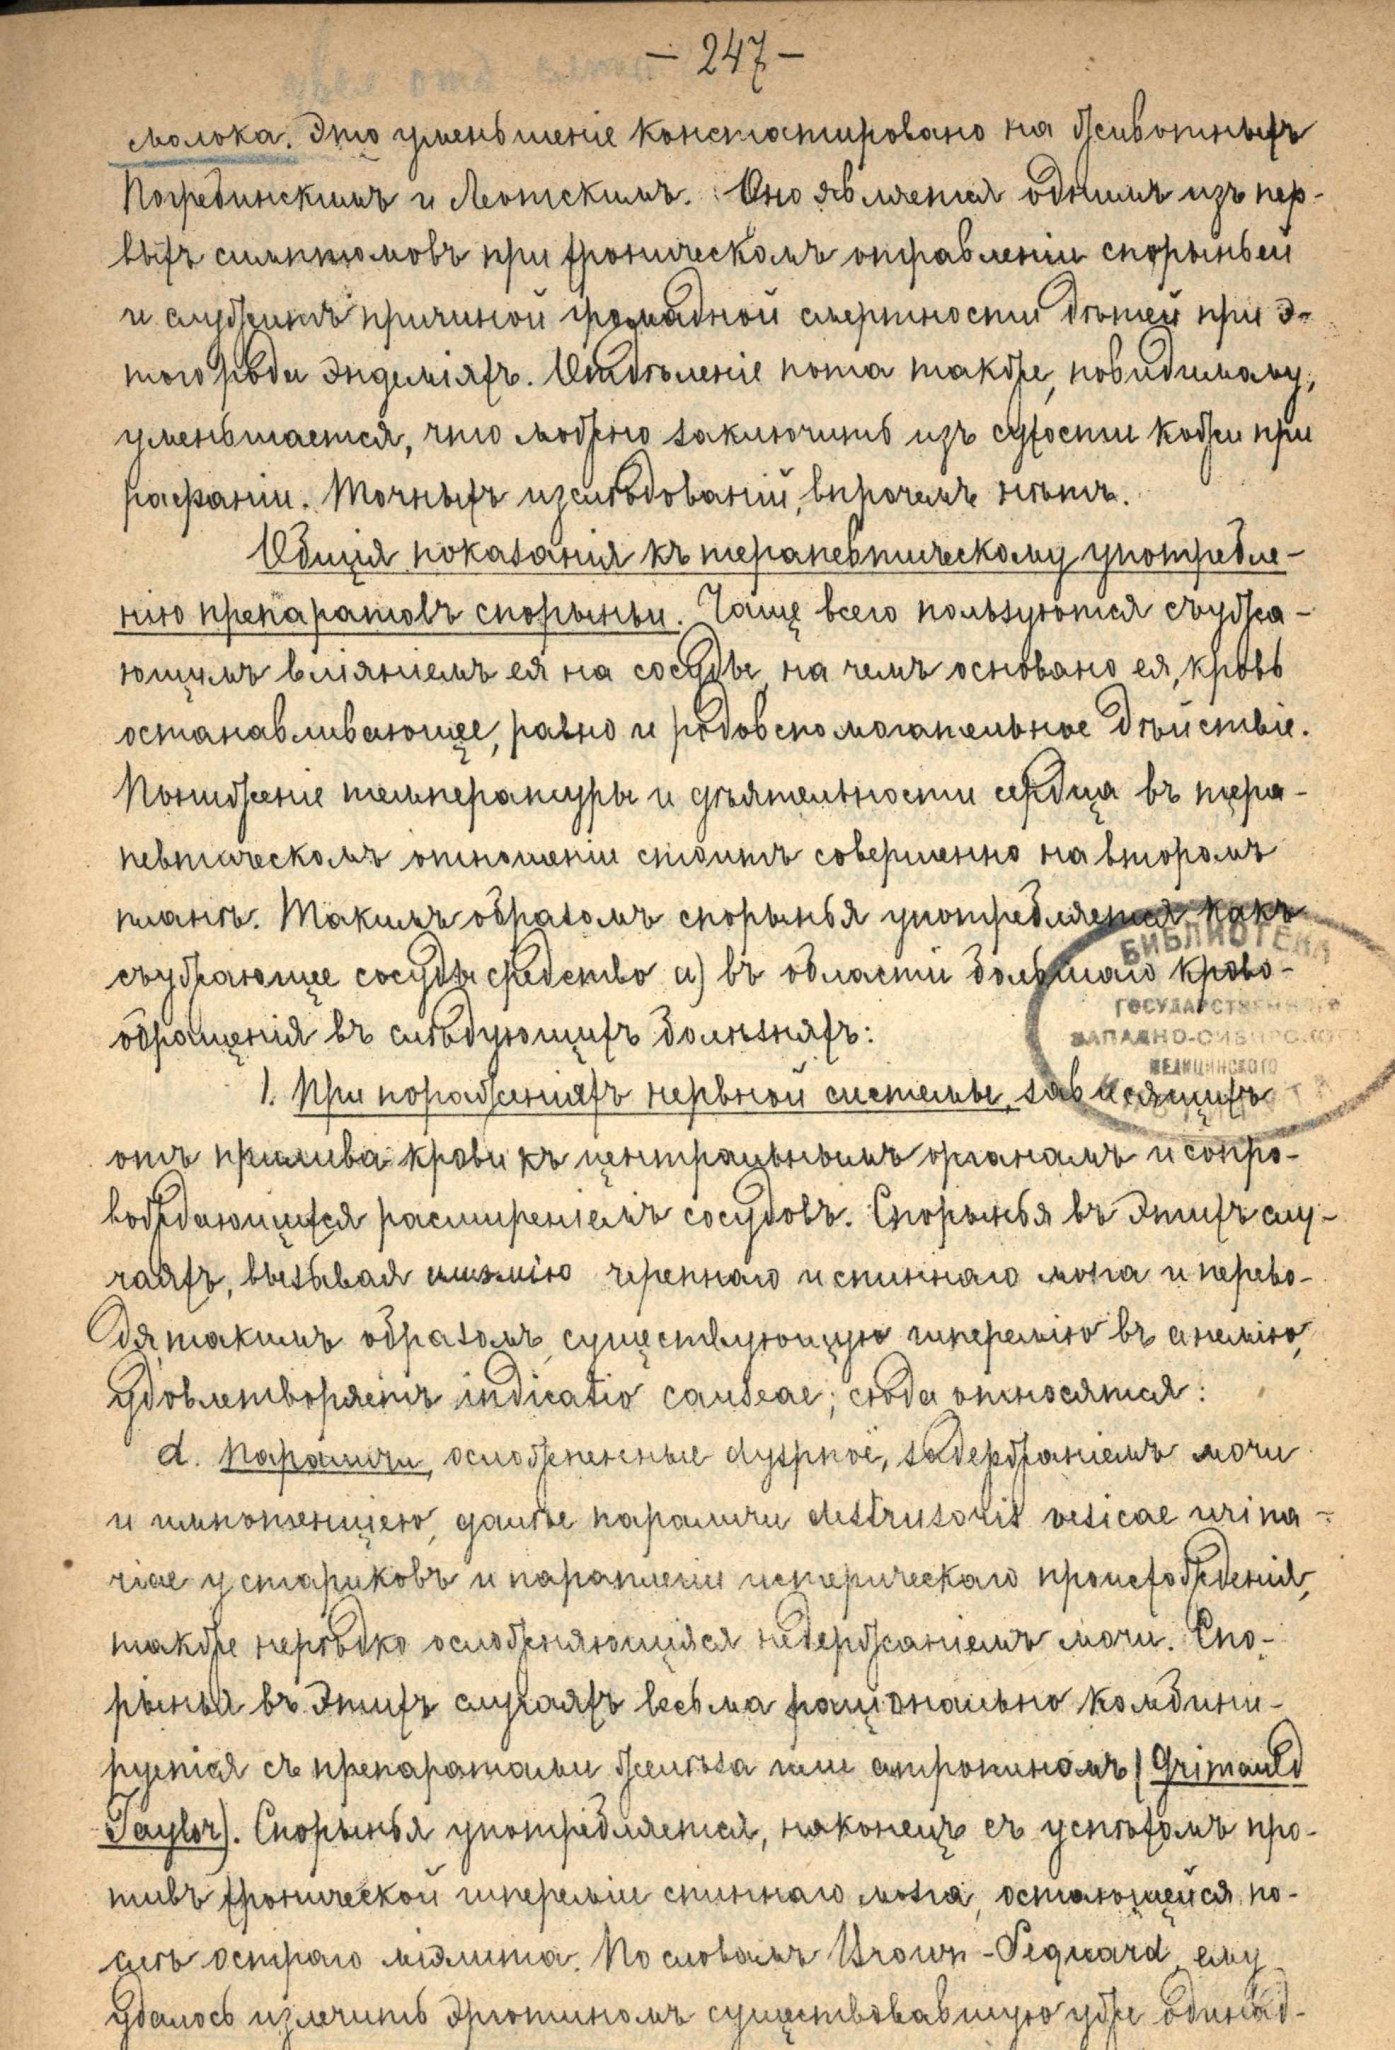 — 247 —
молока. Это уменьшеніе констатировано на животныхъ
Погребинскимъ и Леотскимъ. Оно является однимъ изъ пер-
выхъ симптомовъ при хроническомъ отравленіи спорыньей
и служитъ причиной громадной смертности дѣтей при э-
того рода эндеміяхъ. Отдѣленіе пота также, повидимому,
уменьшается, что можно заключить изъ сухости кожи при
рафаніи. Точныхъ изслѣдованій, впрочемъ нѣтъ.
Общія показанія къ терапевтическому употребле-
нію препаратовъ спорыньи. Чаще всего пользуются съужа-
ющимъ вліяніемъ ея на сосуды, на чемъ основано ея, кровь
останавливающее, равно и родовспомогательное дѣйствіе.
Пониженіе температуры и дѣятельности сердца въ тера-
певтическомъ отношеніи стоитъ совершенно на второмъ
планѣ. Такимъ образомъ спорынья употребляется какъ
съужающее сосуды средство а) въ области большаго крово-
обращенія въ слѣдующихъ болѣзняхъ:
БИБЛИОТЕКА
ГОСУДАРСТВЕННОГО
ЗАПАДНО-СИБИРСКОГО
МЕДИЦИНСКОГО
1. При пораженіяхъ нервной системы, зависящихъ
отъ прилива крови къ центральнымъ органамъ и сопро-
вождающихся расширеніемъ сосудовъ. Спорынья въ этихъ слу-
чаяхъ, вызывая черепнаго и спиннаго мозга и перево-
дя, такимъ образомъ, существующую гиперемію въ анемію,
удовлетворяетъ indicatio causeae; сюда относятся:
d. Параличи, осложненные dyspnoё, задержаніемъ мочи
и импотенціею, далѣе параличи destrusoris vesicae urina-
riae у стариковъ и параплегіи истерическаго происхожденія,
также нерѣдко осложняющіяся недержаніемъ мочи. Спо-
рынья въ этихъ случаяхъ весьма раціонально комбини-
руется съ препаратами желѣза или атропиномъ (Grimauld
Taylor). Спорынья употребляется, наконецъ съ успѣхомъ про-
тивъ хронической гипереміи спиннаго мозга, остающейся по-
слѣ остраго міэлита. По словамъ Brown-Sequard, ему
удалось излечить эрготиномъ существовавшую уже одинад-